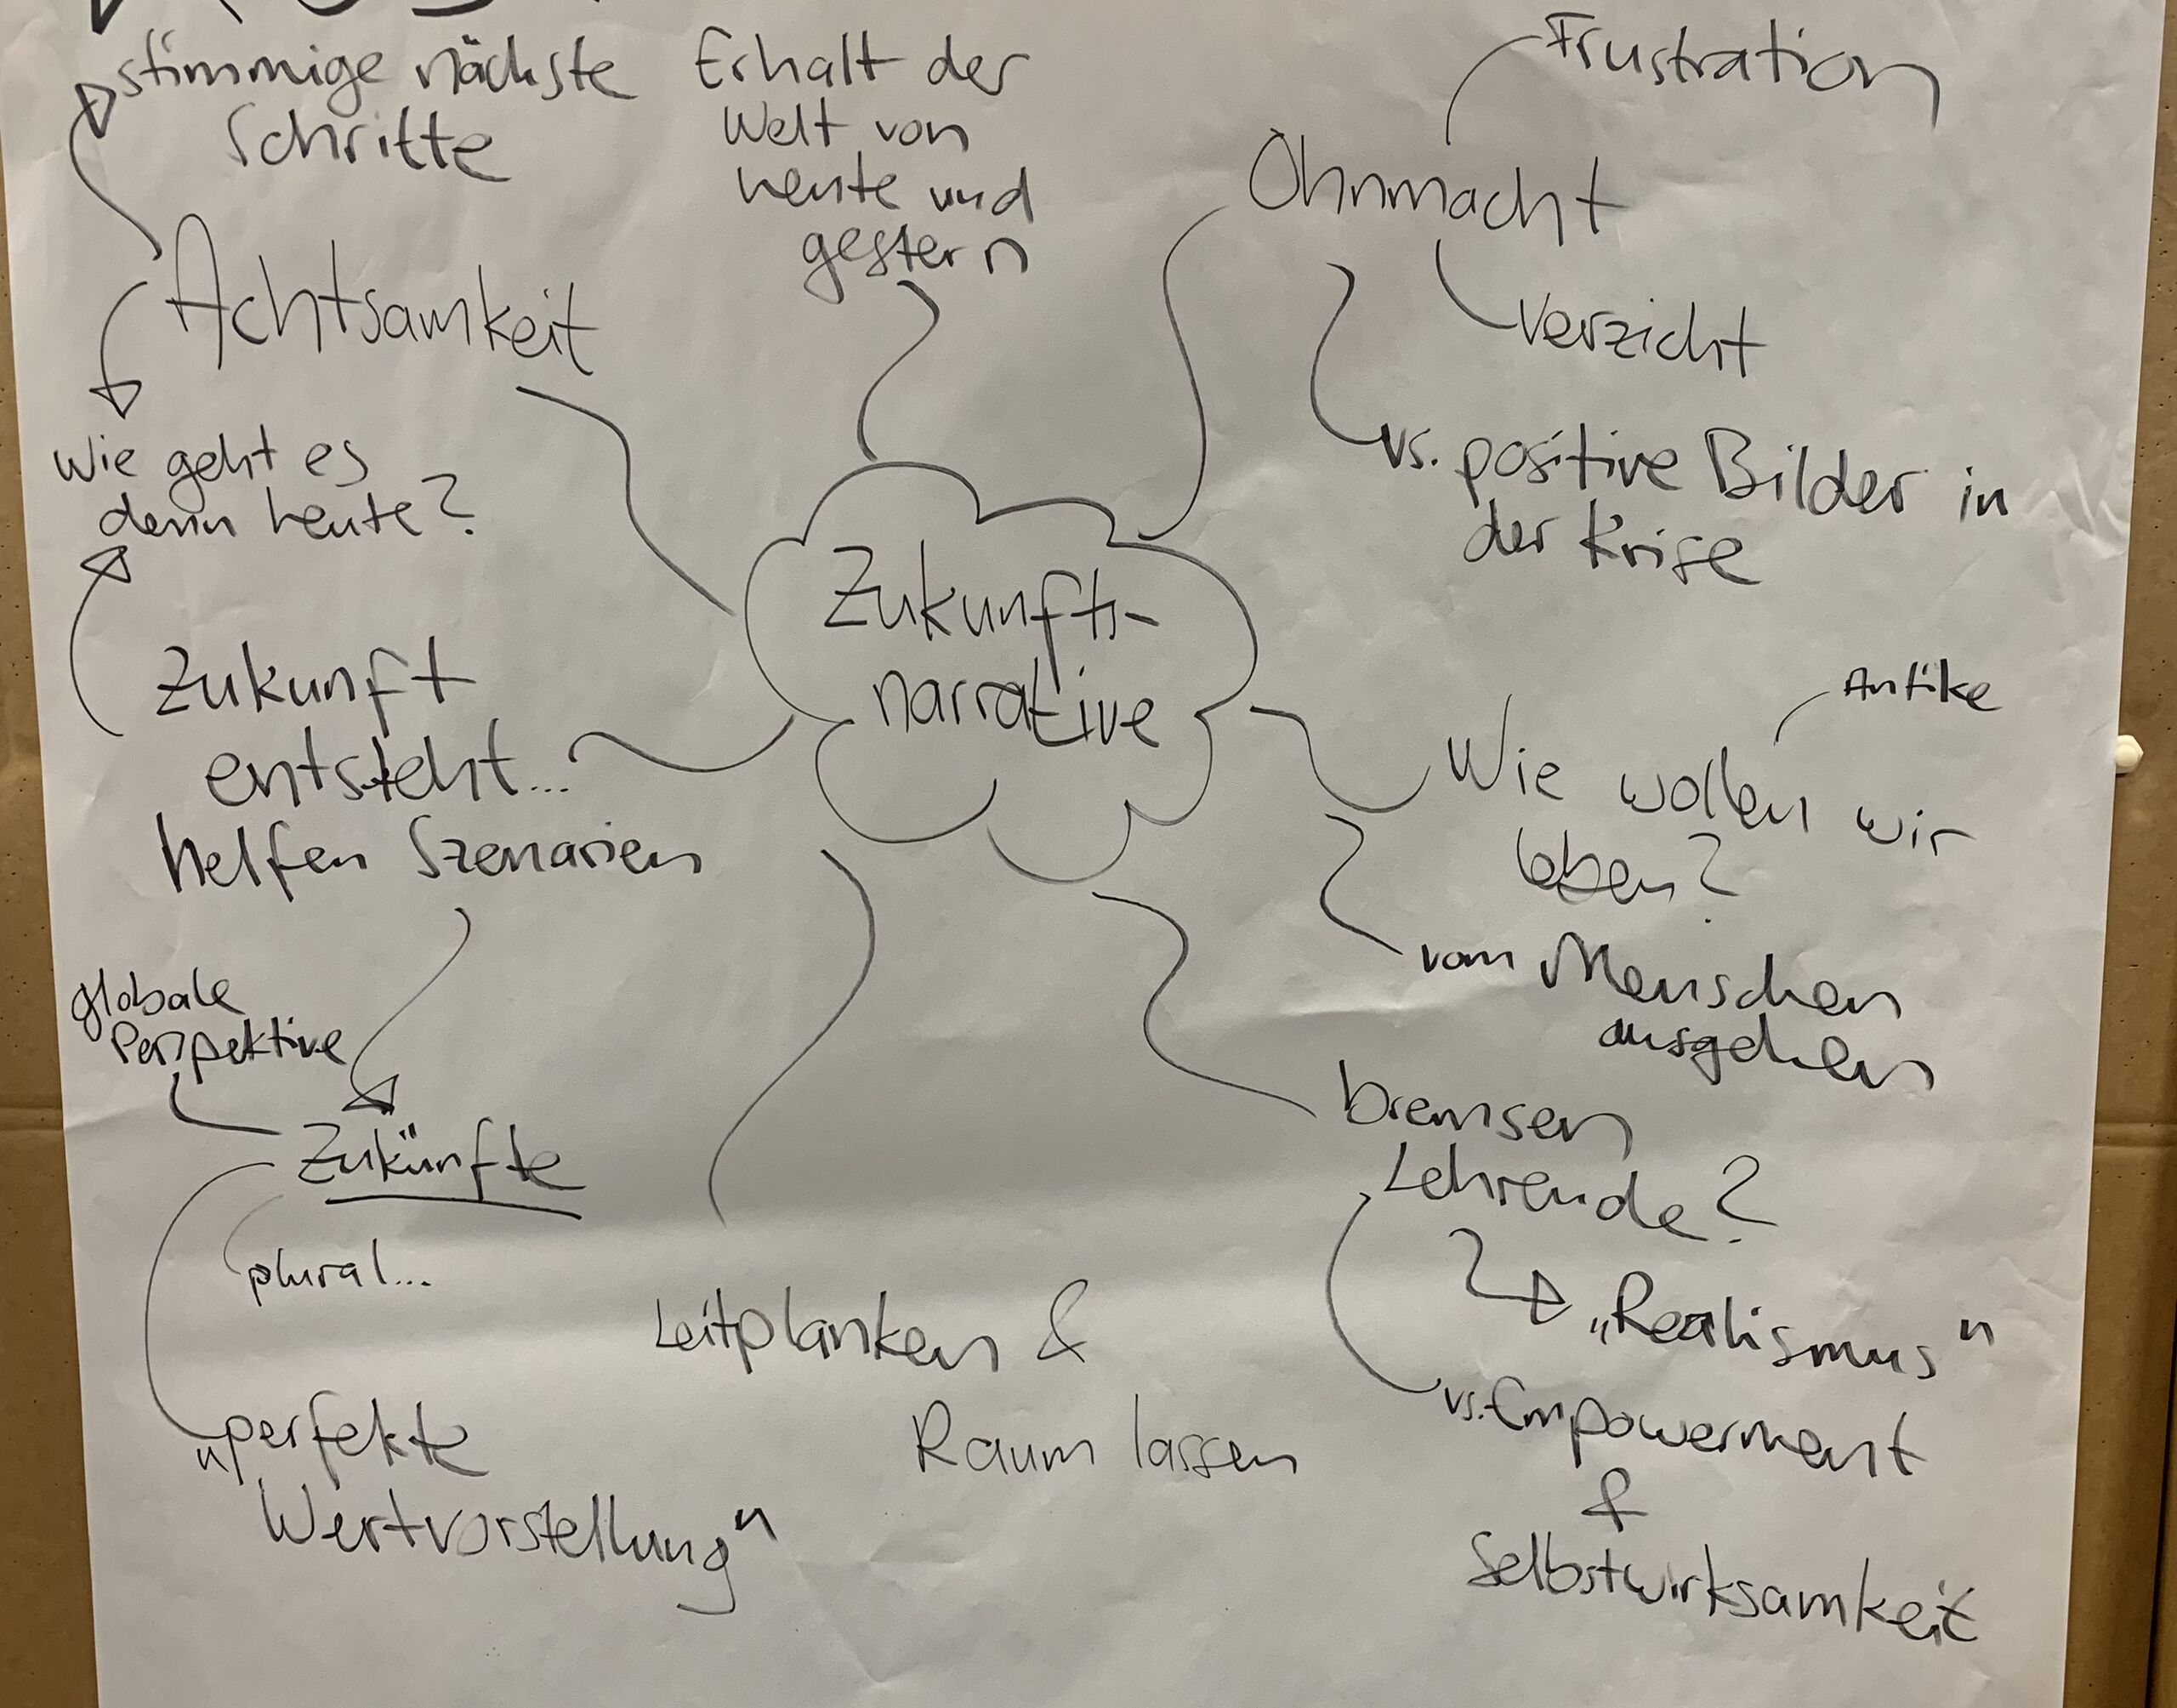 stimmige nächste
Schritte
Erhalt der
Welt von
heute und
gestern
Frustration
Ohnmacht
Verzicht
vs. positive Bilder in
der Krise
Achtsamkeit
Wie geht es
denn heute?
Zukunfts-
narrative
Zukunft
entsteht...
helfen Szenarien
Antike
Wie wollen wir
leben?
vom Menschen
ausgehen
globale
Perspektive
Zukünfte
plural...
„perfekte
Wertvorstellung"
Leitplanken &
Raum lassen
bremsen
Lehrende?
„Realismus"
vs. Empowerment
&
Selbstwirksamkeit